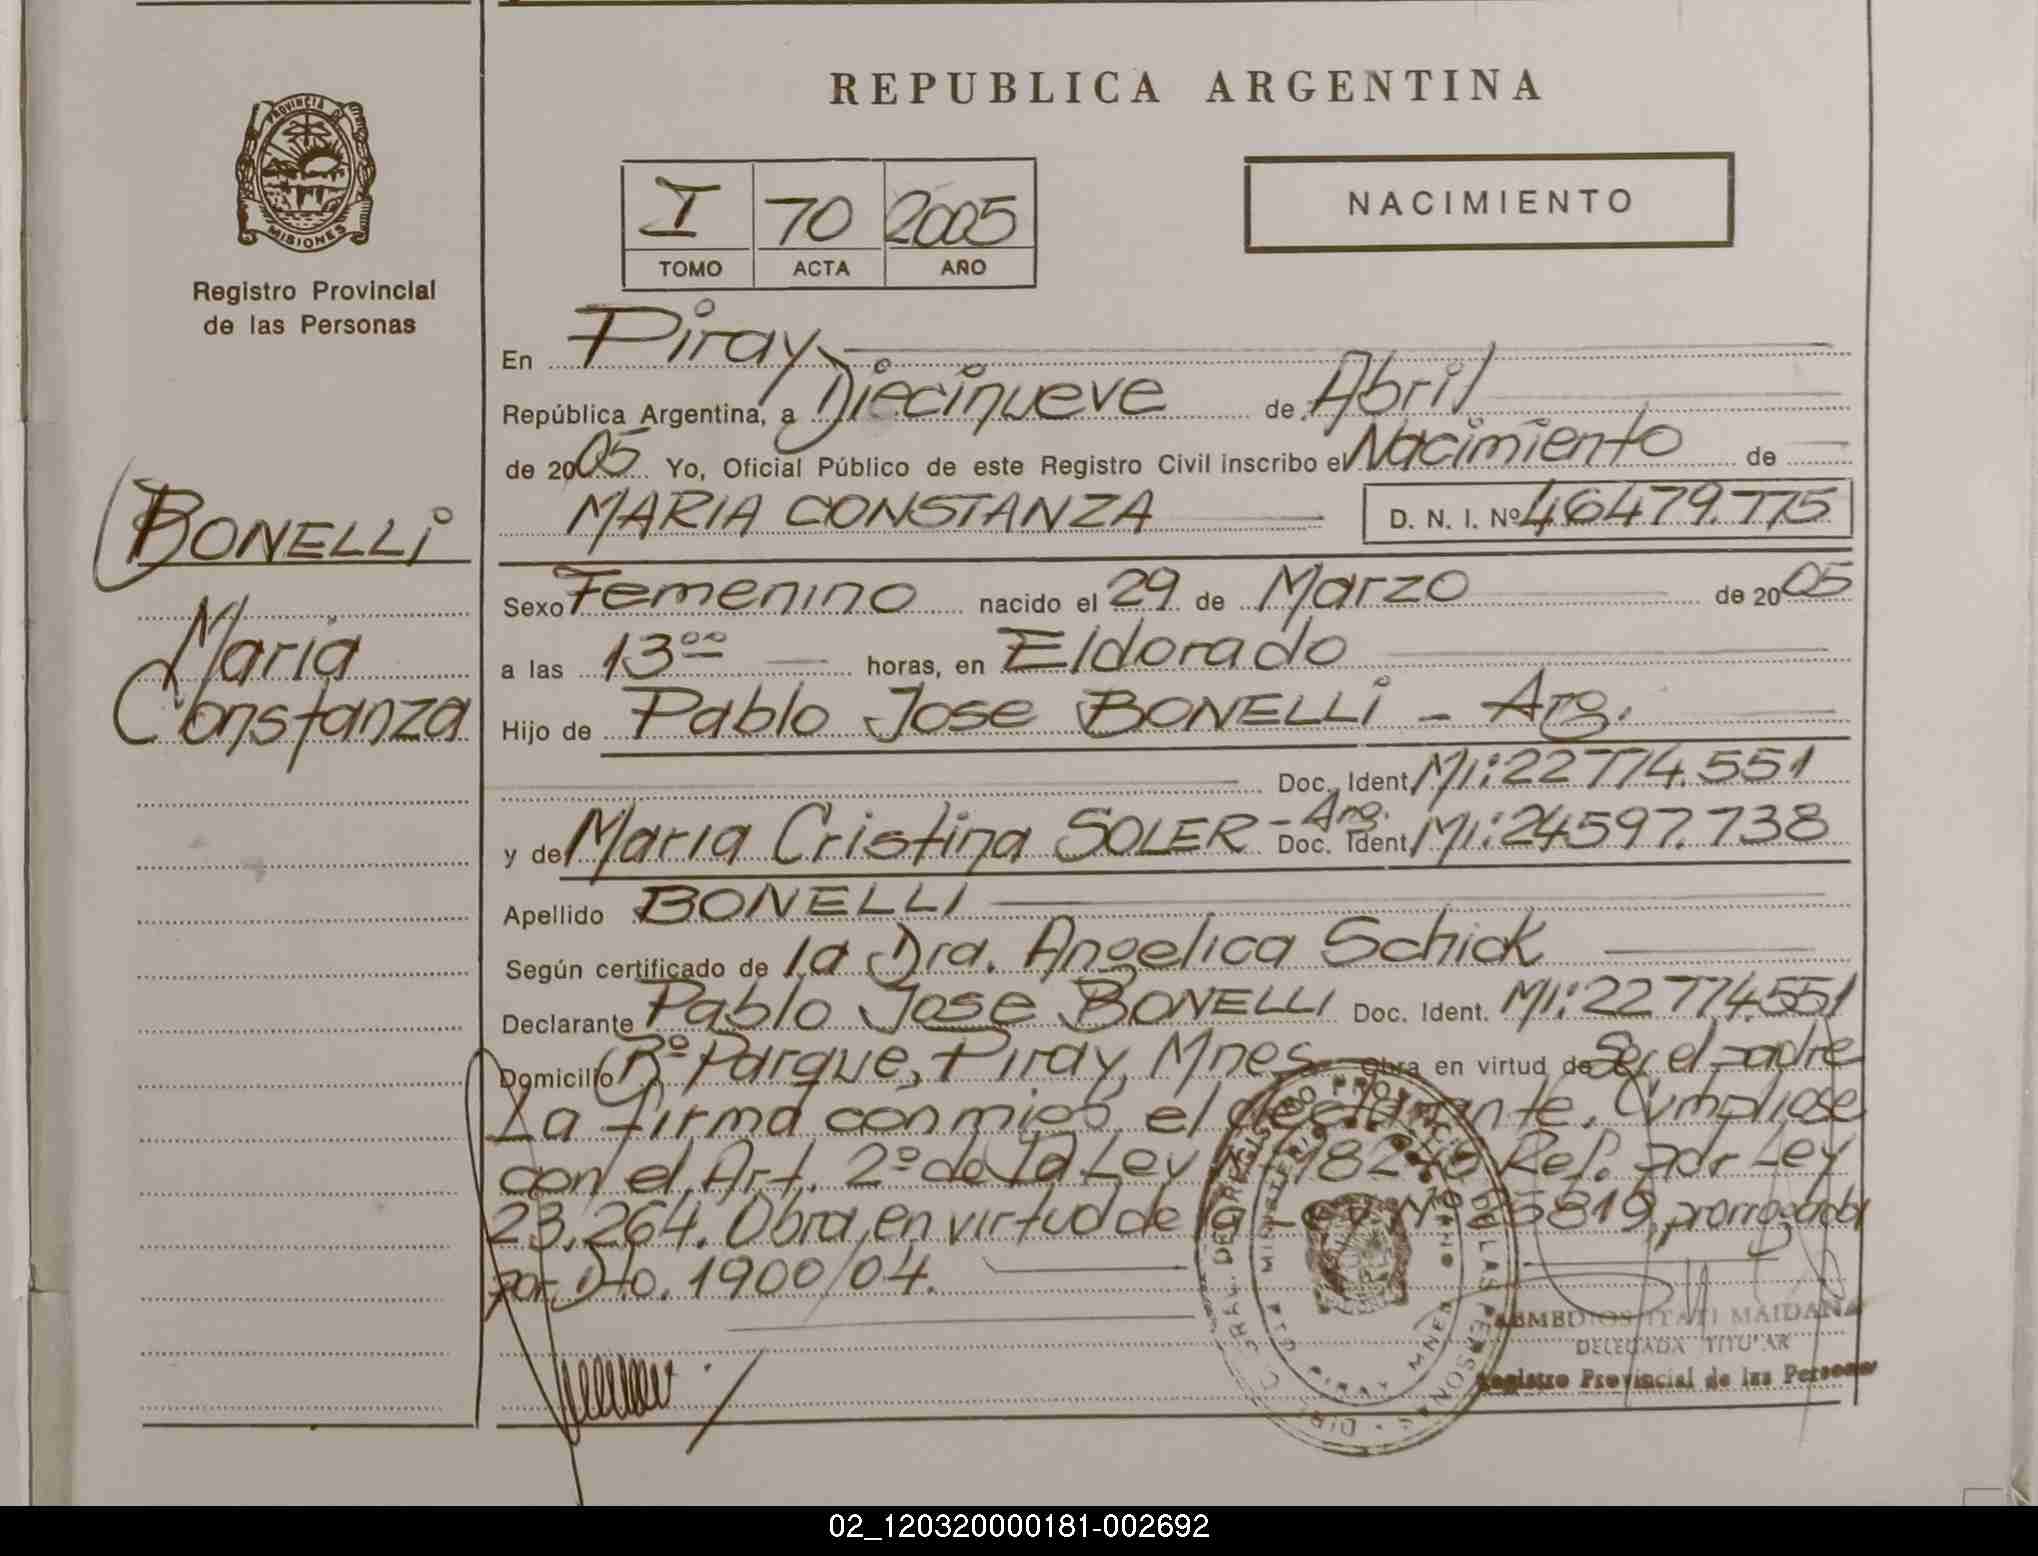 REPUBLICA ARGENTINA
PROVINCIA DE
MISIONES
Registro Provincial
de las Personas
I 70 2005
TOMO ACTA AÑO
NACIMIENTO
BONELLI
Maria
Constanza
En Piray
República Argentina, a Diecinueve de Abril
de 2005 Yo, Oficial Público de este Registro Civil inscribo el Nacimiento de
MARIA CONSTANZA D. N. I. Nº 46479.775
Sexo Femenino nacido el 29 de Marzo de 2005
a las 13 00 horas, en Eldorado
Hijo de Pablo Jose BONELLI - Arg.
Doc. Ident. MI: 22774.551
y de Maria Cristina SOLER - Arg. Doc. Ident. MI: 24597.738
Apellido BONELLI
Según certificado de la Dra. Angelica Schick
Declarante Pablo Jose BONELLI Doc. Ident. MI: 22774.551
Domicilio Bº Parque, Piray, Mnes. Obra en virtud de Ser el padre
La firma conmigo el declarante. Cumpliose
con el Art. 2º de la Ley Nº 18248 Ref. por Ley
23.264. Obra en virtud de la Ley Nº 25819, prorrogada
por Dto. 1900/04.
ITATI MAIDANA
DELEGADA TITULAR
Registro Provincial de las Personas
02_120320000181-002692